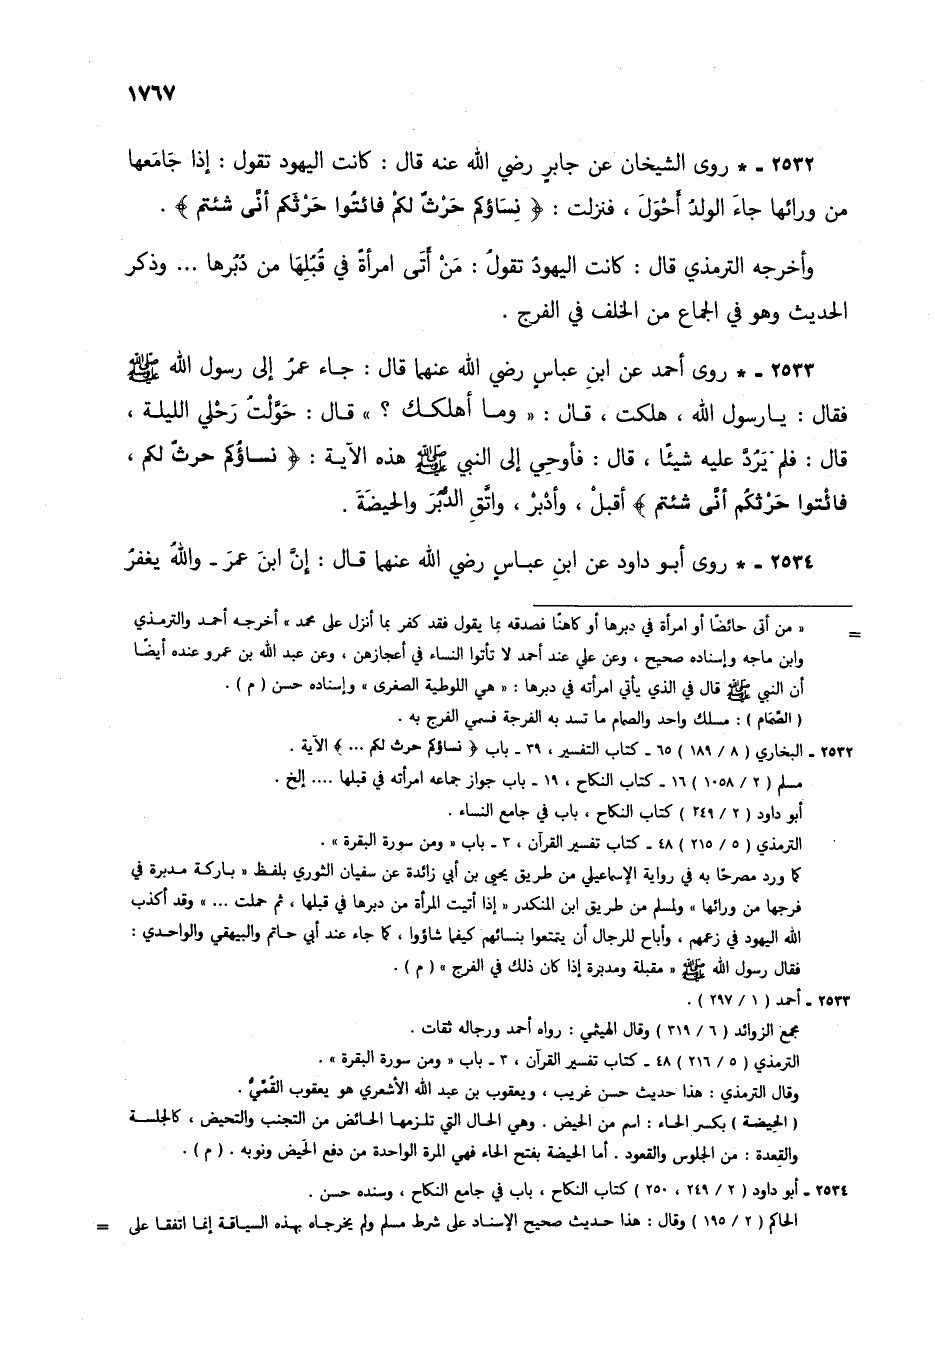 ١٧٦٧
٢٥٣٢ - * روى الشيخان عن جابرٍ رضي الله عنه قال : كانت اليهود تقول : إذا جَامَعها
من ورائها جاءَ الولدُ أَحْوَلَ ، فنزلت : ﴿ نِسَاؤكم حَرْثٌ لكمْ فائتُوا حَرْثَكم أنَّى شئتم ﴾ .
وأخرجه الترمذي قال : كانت اليهودُ تقولُ : مَنْ أَتَى امرأةً في قُبُلِهَا من دُبُرها ... وذكر
الحديث وهو في الجماع من الخلف في الفرج .
٢٥٣٣ - * روى أحمد عن ابنِ عباسٍ رضي الله عنهما قال : جـاء عمرُ إلى رسول الله ﷺ
فقال : يـارسول الله ، هلكت ، قـال : « ومـا أهلكـك ؟ » قـال : حَوَّلْتُ رَحْلي الليلـة ،
قال : فلم يَرُدَّ عليه شيئًا ، قال : فأوحِي إلى النبي ﷺ هذه الآيـة : ﴿ نسـاؤكم حرثٌ لكم ،
فائْتوا حَرْثكُم أنَّى شئتم ﴾ أقبلْ ، وأدْبرْ ، واتَّقِ الدُّبُرَ والحيضَةَ .
٢٥٣٤ - * روى أبـو داود عن ابنِ عبـاسٍ رضي الله عنهمـا قـال : إنَّ ابنَ عمرَ - واللهُ يغفرُ
= « من أتى حائضًا أو امرأة في دبرها أو كاهنًا فصدقه بما يقول فقد كفر بما أنزل على محمد » أخرجـه أحمـد والترمـذي
وابن ماجه وإسناده صحيح ، وعن علي عند أحمد لا تأتوا النساء في أعجازهن ، وعن عبد الله بن عمرو عنده أيضًا
أن النبي ﷺ قال في الذي يأتي امرأته في دبرها : « هي اللوطية الصغرى » وإسناده حسن ( م ) .
( الصِّمَام ) : مسلك واحد والصمام ما تسد به الفرجة فسمي الفرج به .
٢٥٣٢ - البخاري ( ٨ / ١٨٩ ) ٦٥ - كتاب التفسير ، ٣٩ - باب ﴿ نساؤكم حرث لكم ... ﴾ الآية .
مسلم ( ٢ / ١٠٥٨ ) ١٦ - كتاب النكاح ، ١٩ - باب جواز جماعه امرأته في قبلها .... إلخ .
أبو داود ( ٢ / ٢٤٩ ) كتاب النكاح ، باب في جامع النساء .
الترمذي ( ٥ / ٢١٥ ) ٤٨ - كتاب تفسير القرآن ، ٣ - باب « ومن سورة البقرة » .
كما ورد مصرحًا به في رواية الإسماعيلي من طريق يحيى بن أبي زائدة عن سفيان الثوري بلفـظ « بـاركـة مـدبرة في
فرجها من ورائها » ولمسلم من طريق ابن المنكدر « إذا أتيت المرأة من دبرها في قبلها ، ثم حملت ... » وقد أكذب
الله اليهود في زعمهم ، وأباح للرجال أن يتمتعوا بنسائهم كيفما شاؤوا ، كما جاء عند أبي حـاتم والبيهقي والواحـدي :
فقال رسول الله ﷺ « مقبلة ومدبرة إذا كان ذلك في الفرج » ( م ) .
٢٥٣٣ - أحمد ( ١ / ٢٩٧ ) .
مجمع الزوائد ( ٦ / ٣١٩ ) وقال الهيثمي : رواه أحمد ورجاله ثقات .
الترمذي ( ٥ / ٢١٦ ) ٤٨ - كتاب تفسير القرآن ، ٣ - باب « ومن سورة البقرة » .
وقال الترمذي : هذا حديث حسن غريب ، ويعقوب بن عبد الله الأشعري هو يعقوب القُمِّيُّ .
( الحِيضـة ) بكسر الحـاء : اسم من الحيض . وهي الحـال التي تلـزمهـا الحـائض من التجنب والتحيض ، كالجلسـة
والقعدة : من الجلوس والقعود . أما الحيضة بفتح الحاء فهي المرة الواحدة من دفع الحَيض ونوبه . ( م ) .
٢٥٣٤ - أبو داود ( ٢ / ٢٤٩ ، ٢٥٠ ) كتاب النكاح ، باب في جامع النكاح ، وسنده حسن .
الحاكم ( ٢ / ١٩٥ ) وقال : هذا حـديث صحيح الإسنـاد على شرط مسلم ولم يخرجـاه بهـذه السيـاقـة إنمـا اتفقـا على =